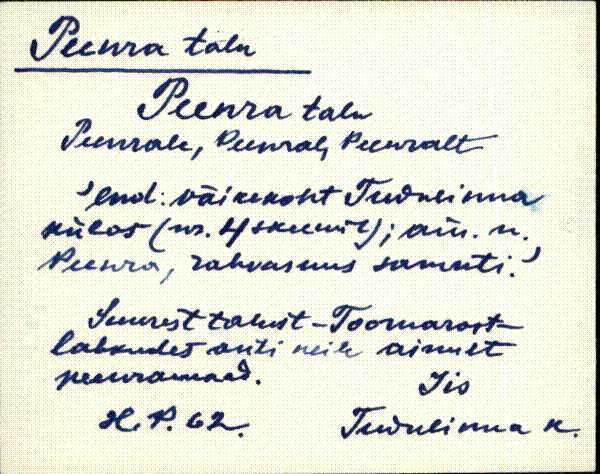 Peenra talu
Peenra talu
Peenrale, Peenral, Peenralt
'end. väikekoht Tudulinna
külas (nr. 4 skeemil); am. n.
Peenra, rahvasuus samuti.'
Suurest talust - Toomarast -
labkudes anti neile ainult
peenramaad.
Iis
H. P. 62. Tudulinna k.